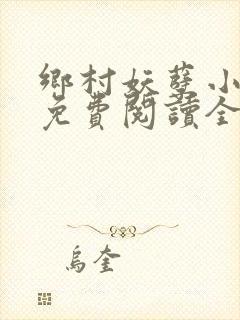 鄉村妖孽小
免費閱讀全
烏奎